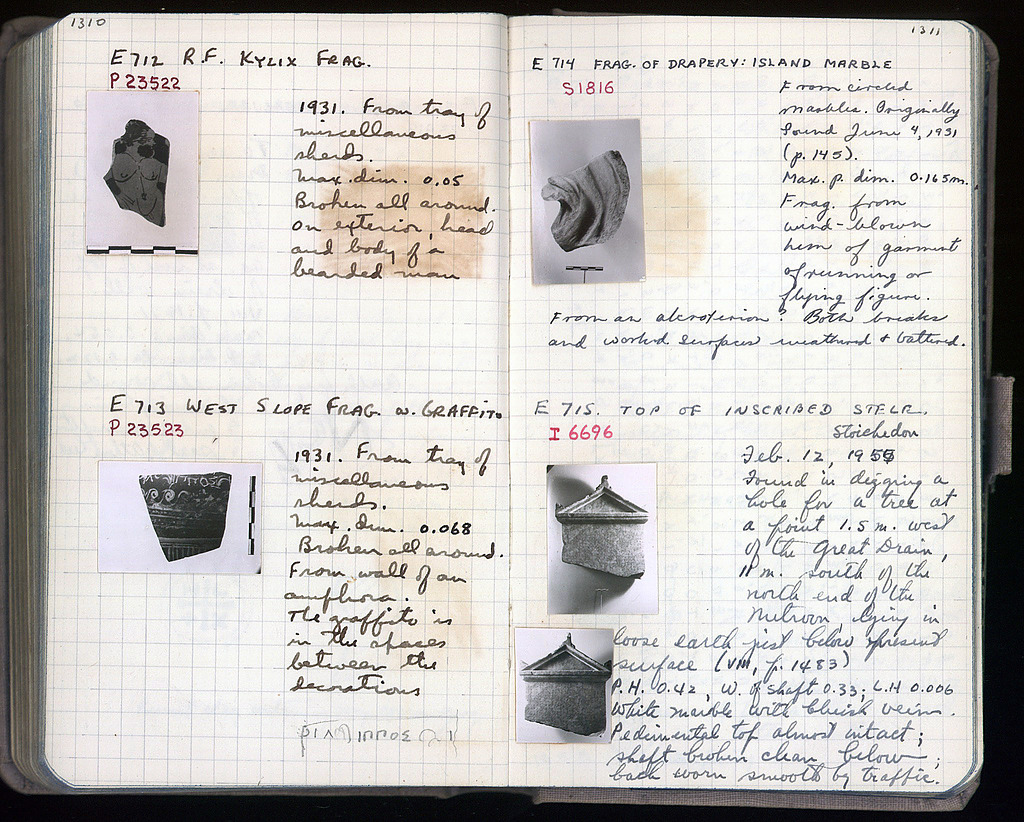 1310
E 712 R.F. KYLIX FRAG.
P 23522
1931. From tray of
miscellaneous
sherds.
Max. dim. 0.05
Broken all around.
On exterior, head
and body of a
bearded man
E 713 WEST SLOPE FRAG. W. GRAFFITO
P 23523
1931. From tray of
miscellaneous
sherds.
Max. Dim. 0.068
Broken all around.
From wall of an
amphora.
The graffito is
in the spaces
between the
decorations
1311
E 714 FRAG. OF DRAPERY: ISLAND MARBLE
S1816
From circled
marbles. Originally
found June 4, 1931
(p. 145).
Max. p. dim. 0.165m.
Frag. from
wind-blown
hem of garment
of running or
flying figure.
From an akroterion? Both breaks
and worked surfaces weathered & battered.
E 715. TOP OF INSCRIBED STELE.
I 6696
Stoichedon
Feb. 12, 1955
Found in digging a
hole for a tree at
a point 1.5 m. west
of the Great Drain,
11 m. south of the
north end of the
Metroon, lying in
loose earth just below present
surface (VIII, p. 1483)
P.H. 0.42, W. of shaft 0.33; L.H 0.006
White marble with bluish veins.
Pedimental top almost intact;
shaft broken clean below;
back worn smooth by traffic.